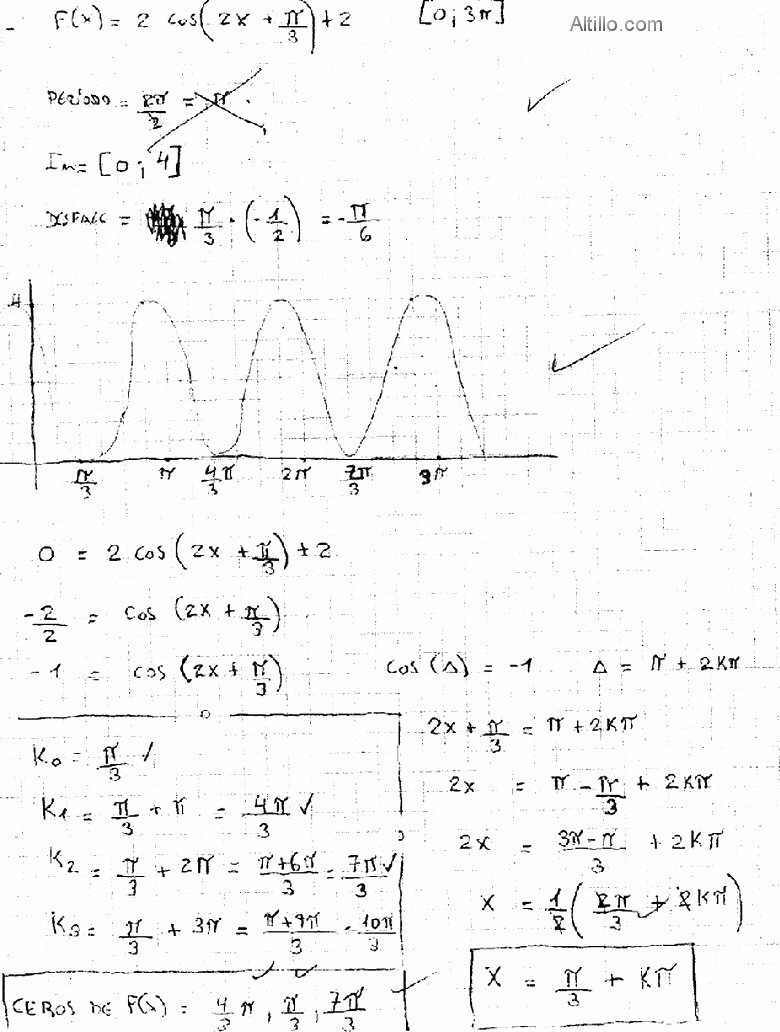 F(x) = 2 cos(2x + π/3) + 2 [0; 3π]
Altillo.com
PERÍODO = 2π/2 = π.
Im = [0; 4]
DESFASE = π/3 · (-1/2) = -π/6
4
π/3 π 4/3 π 2π 7π/3 3π
0 = 2 cos(2x + π/3) + 2
-2/2 = cos(2x + π/3)
-1 = cos(2x + π/3)
cos(Δ) = -1 Δ = π + 2Kπ
2x + π/3 = π + 2Kπ
2x = π - π/3 + 2Kπ
2x = 3π-π/3 + 2Kπ
x = 1/2(2π/3 + 2Kπ)
x = π/3 + Kπ
K0 = π/3 ✓
K1 = π/3 + π = 4π/3 ✓
K2 = π/3 + 2π = π+6π/3 = 7π/3 ✓
K3 = π/3 + 3π = π+9π/3 = 10π/3
CEROS DE F(x) = 4/3 π, π/3, 7π/3